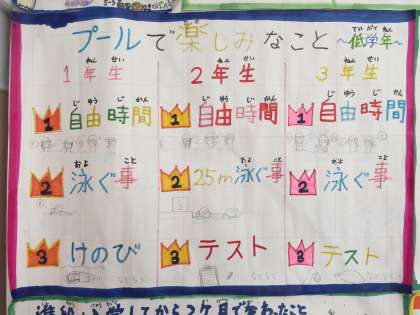 プールで楽しみなこと ～低学年～
1年生 2年生 3年生
1 自由時間 1 自由時間 1 自由時間
2 泳ぐ事 2 25m泳ぐ事 2 泳ぐ事
3 けのび 3 テスト 3 テスト